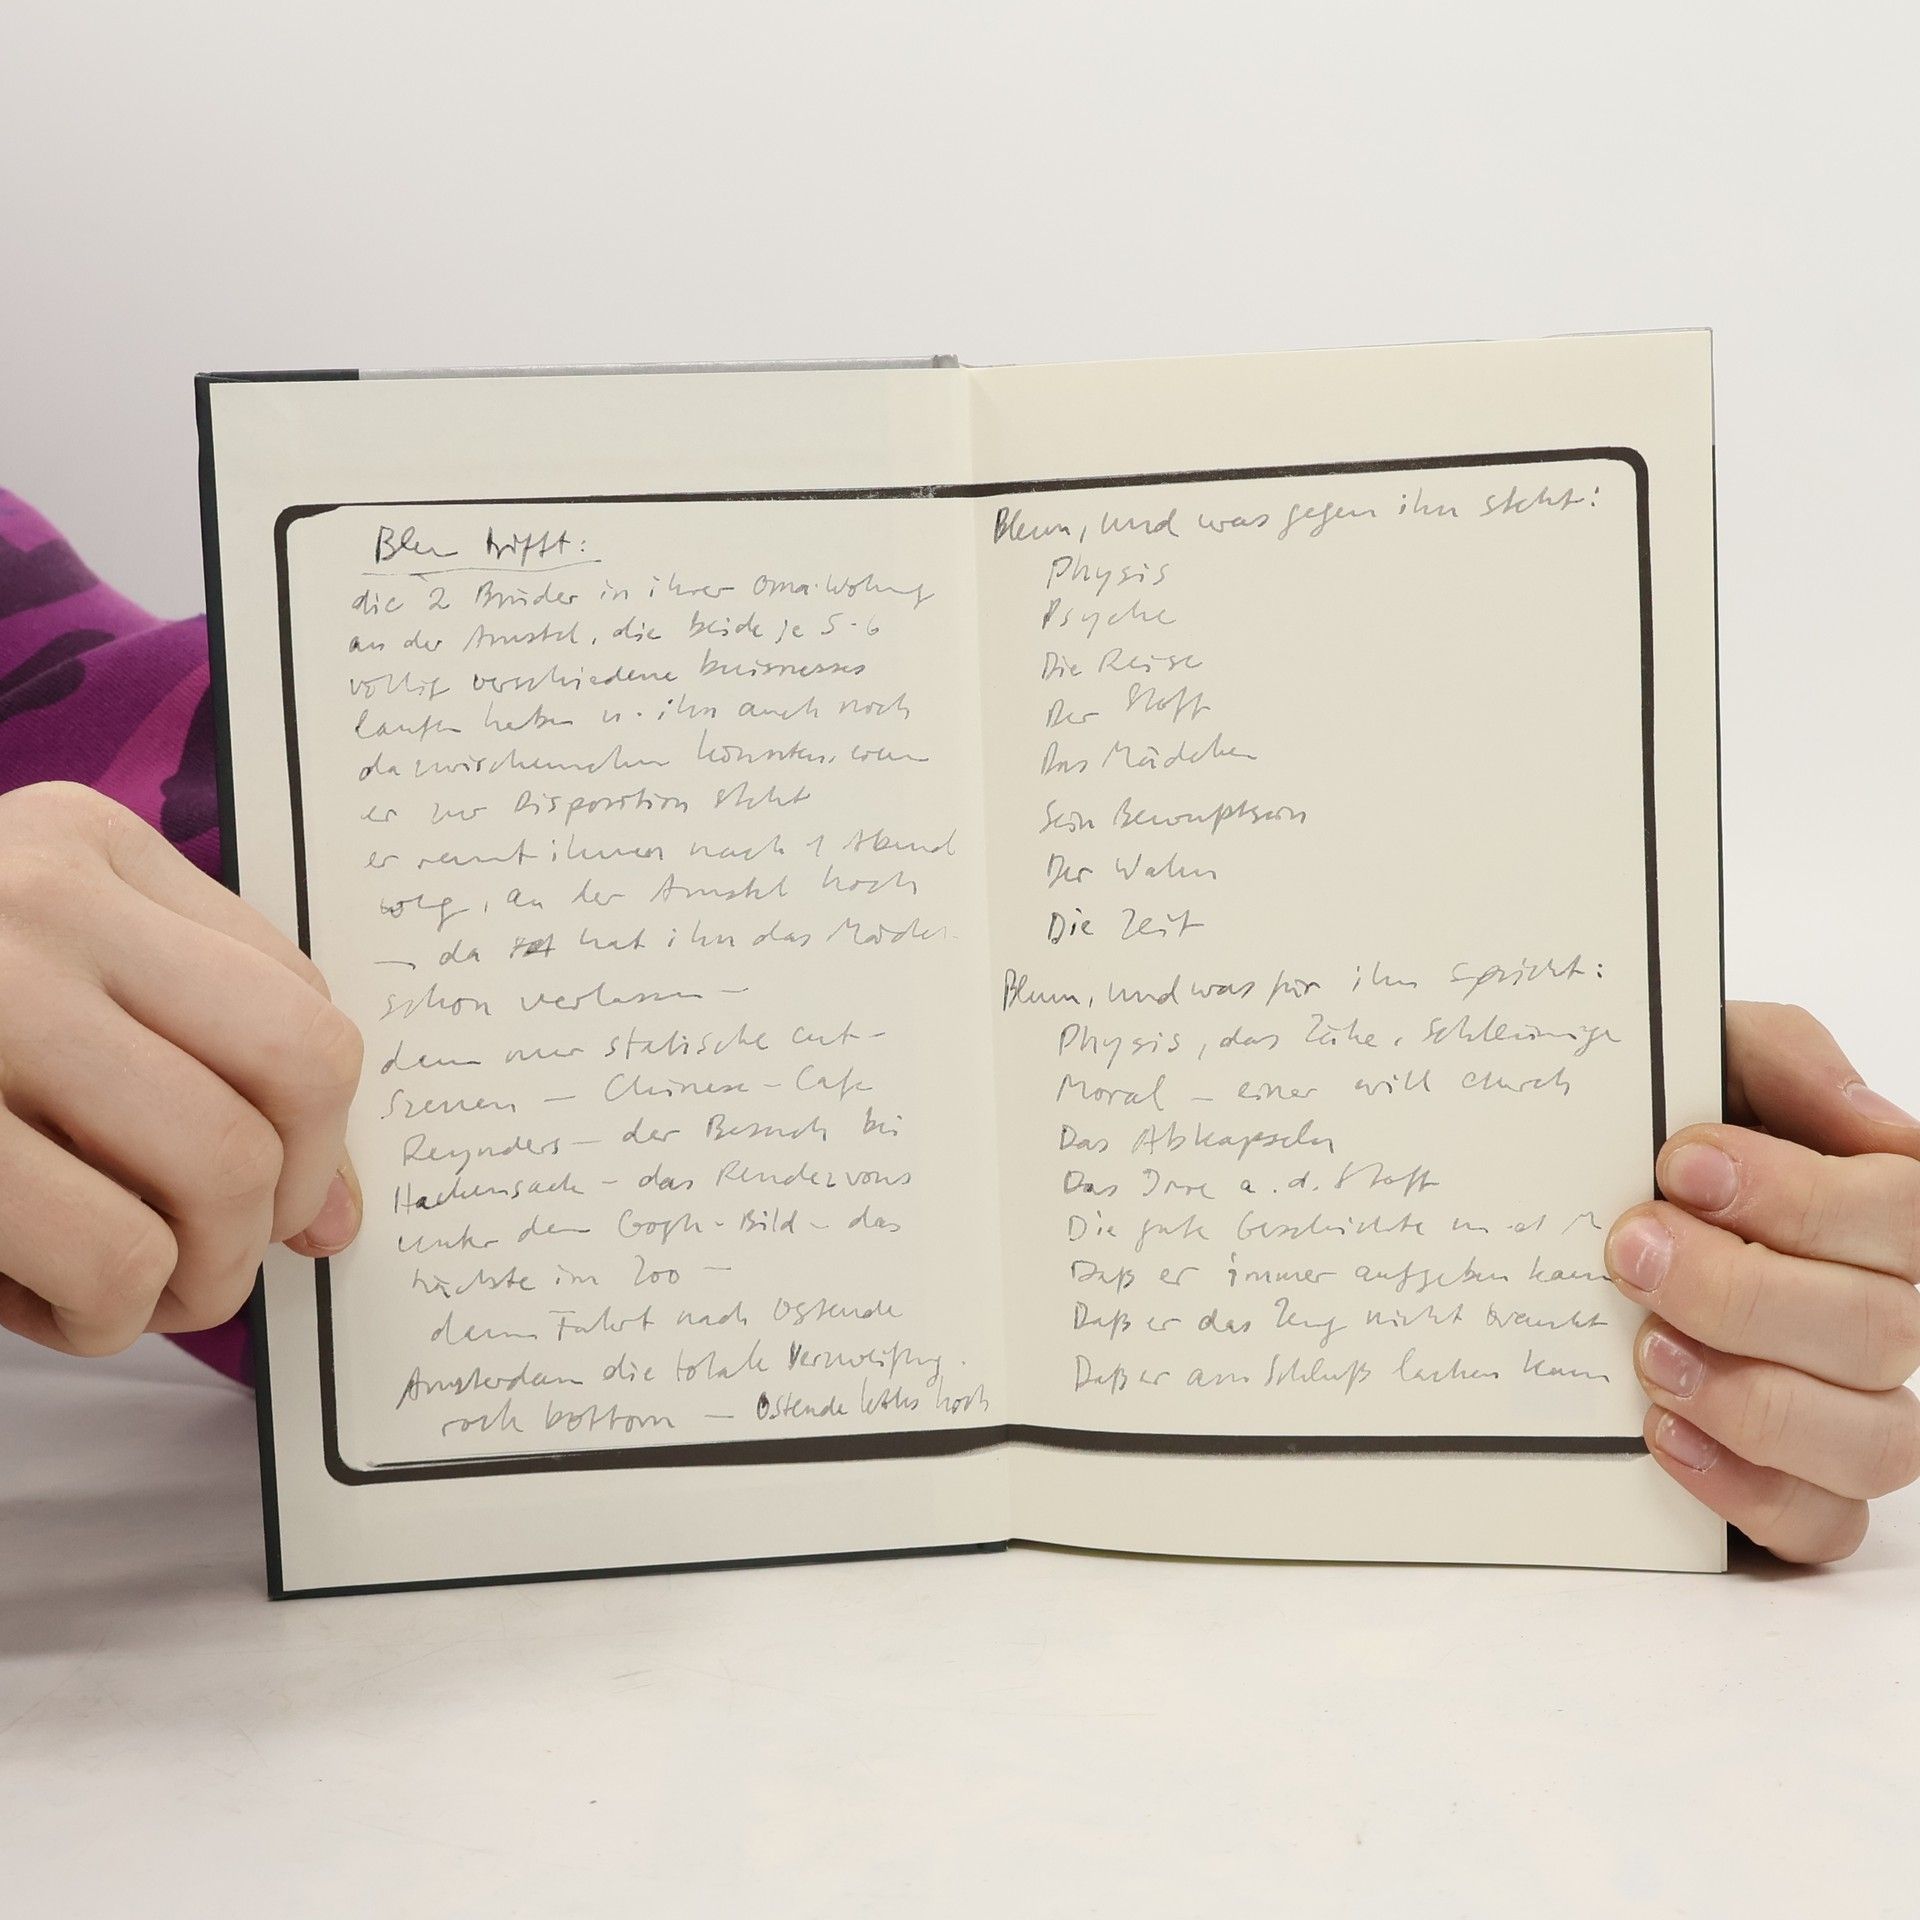 Blum trifft:
die 2 Brüder in ihrer Oma-Wohng
an der Amstel, die beide je 5-6
völlig verschiedene buisnesses
laufen haben u. ihn auch noch
dazwischennehm könnten, wenn
er zur Disposition steht
er rennt ihnen nach 1 Abend
weg, an der Amstel hoch
— da hat ihn das Mädch
schon verlassen —
dann nur statische cut-
Szenen — Chinese-Cafe
Reynders — der Besuch bei
Hackensack — das Rendezvous
unter dem Gogh-Bild — das
nächste im Zoo —
dann Fahrt nach Ostende
Amsterdam die totale Verzweiflg.
rock bottom — Ostende letztes hoch
Blum, und was gegen ihn steht:
Physis
Psyche
Die Reise
Der Stoff
Das Mädchen
Sein Bewußtsein
Der Wahn
Die Zeit
Blum, und was für ihn spricht:
Physis, das Zähe, Schleimige
Moral — einer will durch
Das Abkapseln
Das Irre a. d. Stoff
Die gute Geschichte
Daß er immer aufgeben kann
Daß er das Zeug nicht braucht
Daß er am Schluß lachen kann